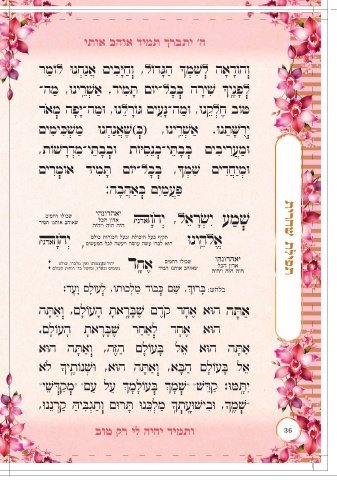 ה' יתברך תמיד אוהב אותי
וְהוֹדָאָה לְשִׁמְךָ הַגָּדוֹל, וְחַיָּבִים אֲנַחְנוּ לוֹמַר
לְפָנֶיךָ שִׁירָה בְּכָל־יוֹם תָּמִיד. אַשְׁרֵינוּ, מַה־
טּוֹב חֶלְקֵנוּ, וּמַה־נָּעִים גּוֹרָלֵנוּ, וּמַה־יָּפָה מְאוֹד
יְרֻשָּׁתֵנוּ. אַשְׁרֵינוּ, (כְּ)שֶׁאֲנַחְנוּ מַשְׁכִּימִים
וּמַעֲרִיבִים בְּבָתֵּי־כְנֵסִיּוֹת וּבְבָתֵּי־מִדְרָשׁוֹת,
וּמְיַחֲדִים שִׁמְךָ, בְּכָל־יוֹם תָּמִיד אוֹמְרִים
פַּעֲמַיִם בְּאַהֲבָה:
שְׁמַע יִשְׂרָאֵל,
אֱלֹהֵינוּ
אֶחָד
בלחש: בָּרוּךְ, שֵׁם כְּבוֹד מַלְכוּתוֹ, לְעוֹלָם וָעֶד:
אַתָּה הוּא אֶחָד קֹדֶם שֶׁבָּרָאתָ הָעוֹלָם, וְאַתָּה
הוּא אֶחָד לְאַחַר שֶׁבָּרָאתָ הָעוֹלָם.
אַתָּה הוּא אֵל בָּעוֹלָם הַזֶּה, וְאַתָּה הוּא
אֵל בָּעוֹלָם הַבָּא, וְאַתָּה הוּא, וּשְׁנוֹתֶיךָ לֹא
יִתָּמּוּ: קַדֵּשׁ שְׁמָךְ בְּעוֹלָמָךְ עַל עַם מְקַדְּשֵׁי
שְׁמֶךָ, וּבִישׁוּעָתְךָ מַלְכֵּנוּ תָּרוּם וְתַגְבִּיהַּ קַרְנֵנוּ,
ותמיד יהיה לי רק טוב
תפילת שחרית
36